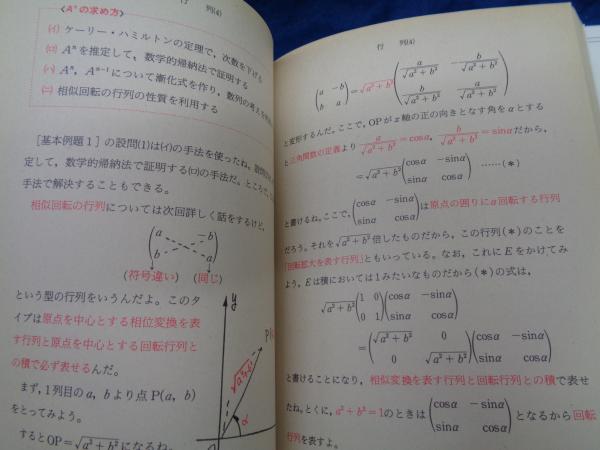 行 列(4)
〈Aⁿの求め方〉
(イ) ケーリー・ハミルトンの定理で，次数を下げる
(ロ) Aⁿを推定して，数学的帰納法で証明する
(ハ) Aⁿ，Aⁿ⁻¹について漸化式を作り，数列の考えを
(ニ) 相似回転の行列の性質を利用する
［基本例題1］の設問(1)は(イ)の手法を使ったね。設問
定して，数学的帰納法で証明する(ロ)の手法だ。ところで，
手法で解決することもできる。
相似回転の行列については次回詳しく話をするけど，
(a −b
b a)
(符号違い) (同じ)
という型の行列をいうんだよ。このタ
イプは原点を中心とする相位変換を表
す行列と原点を中心とする回転行列と
の積で必ず表せるんだ。
まず，1列目の a，b より点P(a，b)
をとってみよう。
するとOP=√a²+b² になるね。
y
P(
√a²+b²
α
行 列(4)
(a −b
b a)=√a²+b² (a/√a²+b² −b/√a²+b²
b/√a²+b² a/√a²+b²)
と変形するんだ。ここで，OPがx軸の正の向きとなす角をαとする
と三角関数の定義より a/√a²+b²=cosα，b/√a²+b²=sinαだから，
=√a²+b² (cosα −sinα
sinα cosα) ……(＊)
と書けるね。ここで，(cosα −sinα
sinα cosα)は原点の囲りにα回転する行列
だろう。それを√a²+b²倍したものだから，この行列(＊)のことを
「回転拡大を表す行列」ともいっている。なお，これにEをかけてみ
よう。Eは積においては1みたいなものだから(＊)の式は，
√a²+b² (1 0
0 1)(cosα −sinα
sinα cosα)
=(√a²+b² 0
0 √a²+b²)(cosα −sinα
sinα cosα)
と書けることになり，相似変換を表す行列と回転行列との積で表せ
たね。とくに，a²+b²=1のときは(cosα −sinα
sinα cosα)となるから回転
行列を表すよ。